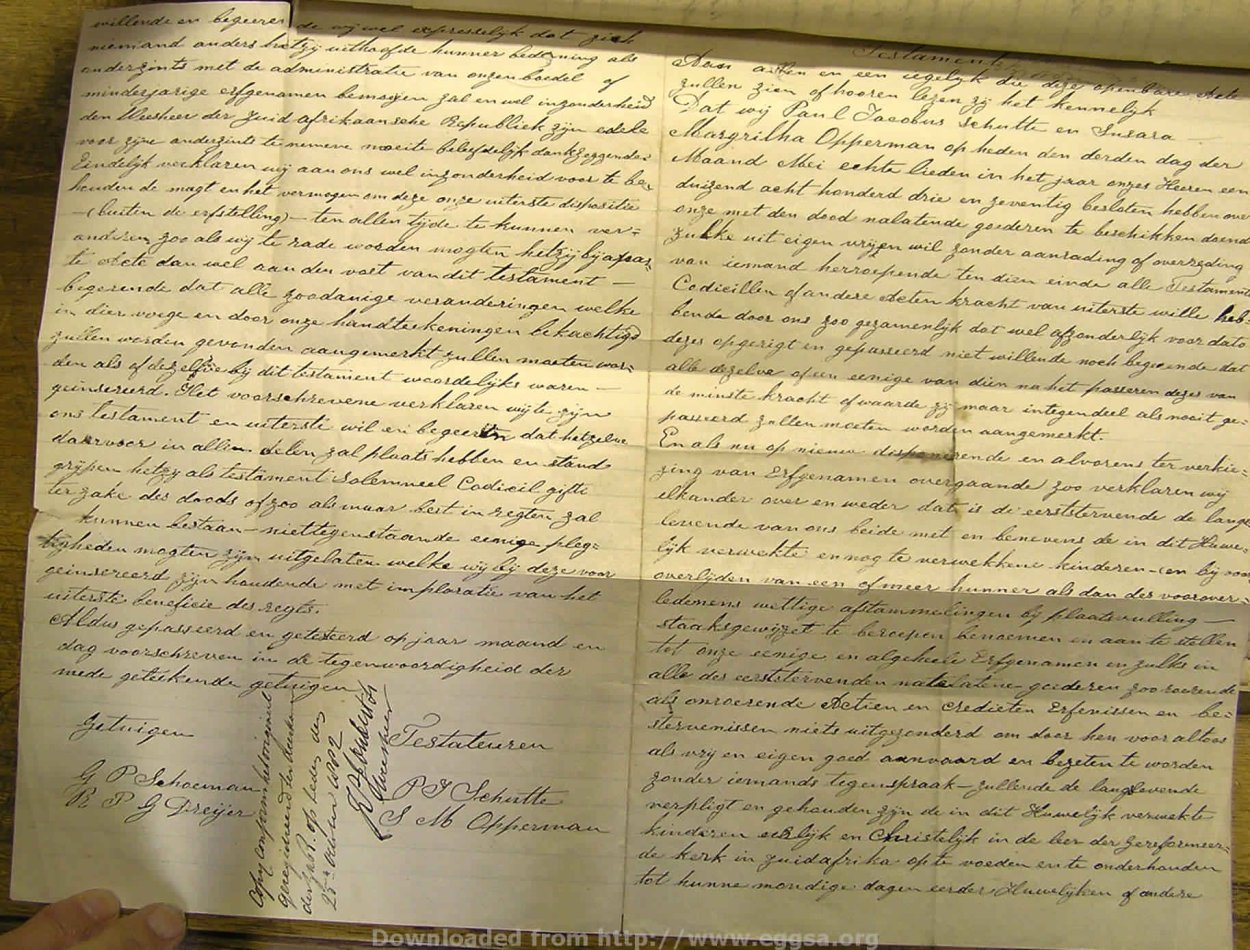 Testament
Aan allen en een iegelijk die deze openbare Acte
zullen zien of hooren lezen zij het kennelijk
Dat wij Paul Jacobus Schutte en Susara
Margritha Opperman op heden den derden dag der
Maand Mei echte lieden in het jaar onzes Heeren een
duizend acht honderd drie en zeventig besloten hebben over
onze met den dood nalatende goederen te beschikken doende
zulke uit eigen vrijen wil zonder aanrading of overreding
van iemand herroepende ten dien einde alle Testament
Codicillen of andere Acten kracht van uiterste wille heb-
bende door ons zoo gezamenlijk dat wel afzonderlijk voor dato
dezes opgerigt en gepasseerd niet willende noch begeerende dat
alle dezelve of een eenige van dien na het passeren dezes van
de minste kracht of waarde zij maar integendeel als nooit ge-
passeerd zullen moeten worden aangemerkt.
En als nu op nieuw disponerende en alvorens ter verkie-
zing van Erfgenamen overgaande zoo verklaren wij
elkander over en weder dat is de eerststervende de langst
levende van ons beide met en benevens de in dit Huwe-
lijk verwekte en nog te verwekkene kinderen - en bij voor
overlijden van een of meer hunner als dan des voorover-
ledenens wettige afstammelingen bij plaatsvulling -
staaksgewijzet te beroepen benoemen en aan te stellen
tot onze eenige en algeheele Erfgenamen en zulks in
alle des eerststervenden natelatene goederen zoo roerende
als onroerende Actien en Credieten Erfenissen en be-
stervenissen niets uitgezonderd om door hen voor altoos
als vrij en eigen goed aanvaard en bezeten te worden
zonder iemands tegenspraak - zullende de langstlevende
verpligt en gehouden zijn de in dit Huwelijk verwekte
kinderen eerlijk en Christelijk in de leer der gereformeer-
de kerk in zuidafrika op te voeden en te onderhouden
tot hunne mondige dagen eerder Huwelijken of andere
willende en begeeren de wij wel expresselijk dat zich
niemand anders hetzij uithoofde hunner bediening als
anderzints met de administratie van onzen boedel of
minderjarige erfgenamen bemoijen zal en wel inzonderheid
den Weesheer der zuid afrikaansche Republiek zijn edele
voor zijne anderzints te nemene moeite beleefdelijk dankzeggende-
Eindelijk verklaren wij aan ons wel inzonderheid voor te be-
houden de magt en het vermogen om deze onze uiterste dispositie
- (buiten de erfstelling) - ten allen tijde te kunnen ver-
anderen zoo als wij te rade worden mogten hetzij bij apar-
te Acte dan wel aan den voet van dit testament -
begerende dat alle zoodanige veranderingen welke
in dier voege en door onze handteekeningen bekrachtigd
zullen worden gevonden aangemerkt zullen moeten wor-
den als of dezelfve bij dit testament woordelijks waren -
geinsereerd. Het voorschrevene verklaren wij te zijn
ons testament en uiterste wil en begeerte dat hetzelve
daarvoor in allen delen zal plaats hebben en stand
grijpen hetzij als testament solemneel Codicil gifte
ter zake des doods of zoo als maar best in regten zal
kunnen bestaan - niettegenstaande eenige pleg-
tigheden mogten zijn uitgelaten welke wij bij deze voor
geinsereerd zijn houdende met imploratie van het
uiterste beneficie des regts.
Aldus gepasseerd en getesteerd op jaar maand en
dag voorschreven in de tegenwoordigheid der
mede geteekende getuigen
Getuigen
G P Schoeman
R P G Dreijer
Testateuren
P J Schutte
S M Opperman
Copij conform het origineele
op heden den
1902
Downloaded from http://www.eggsa.org